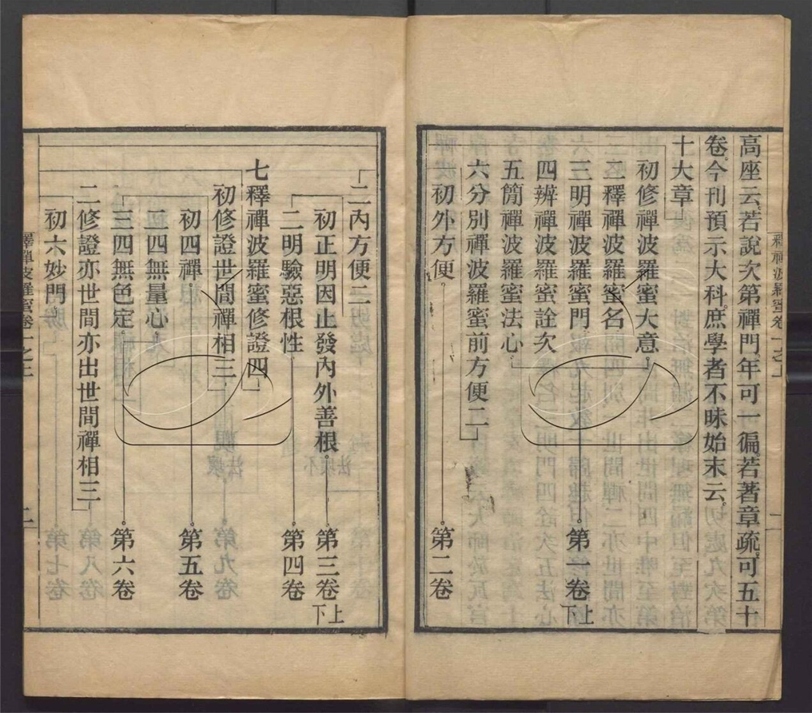 高座云若說次第禪門年可一徧若著章疏可五十
卷今刊預示大科庶學者不昧始末云
十大章
初修禪波羅蜜大意
二釋禪波羅蜜名
三明禪波羅蜜門 第一卷上下
四辨禪波羅蜜詮次
五簡禪波羅蜜法心
六分別禪波羅蜜前方便二
初外方便 第二卷
二內方便二
初正明因止發內外善根 第三卷上下
二明驗惡根性 第四卷
七釋禪波羅蜜修證四
初修證世間禪相三
初四禪 第五卷
二四無量心
三四無色定 第六卷
二修證亦世間亦出世間禪相三
初六妙門
釋禪波羅蜜卷一之上
二